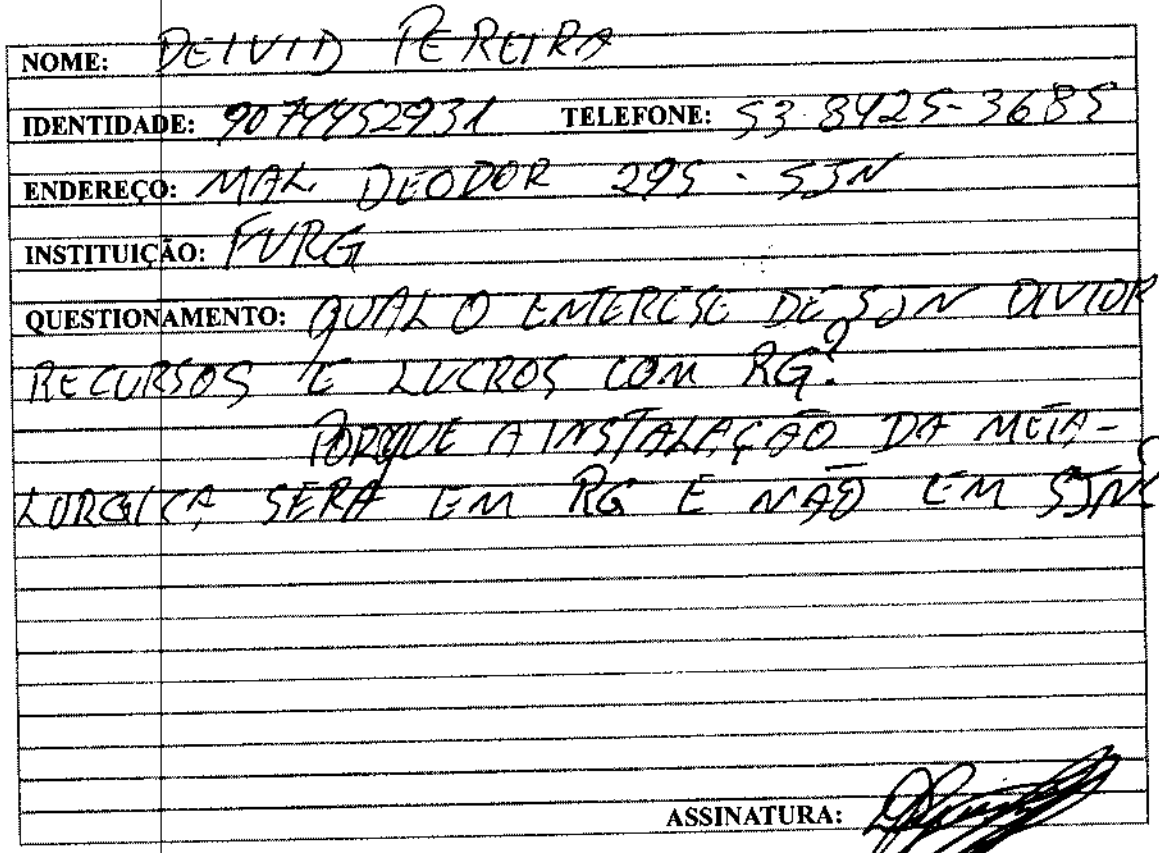 NOME: DEIVID PEREIRA
IDENTIDADE: 9074452931 TELEFONE: 53-8425-3685
ENDEREÇO: MAL DEODOR 295 - SJN
INSTITUIÇÃO: FURG
QUESTIONAMENTO: QUAL O ENTERESE DE SJN DIVIDIR
RECURSOS E LUCROS COM RG?
PORQUE A INSTALAÇÃO DA META-
LURGICA SERA EM RG E NÃO EM SJN?
ASSINATURA: